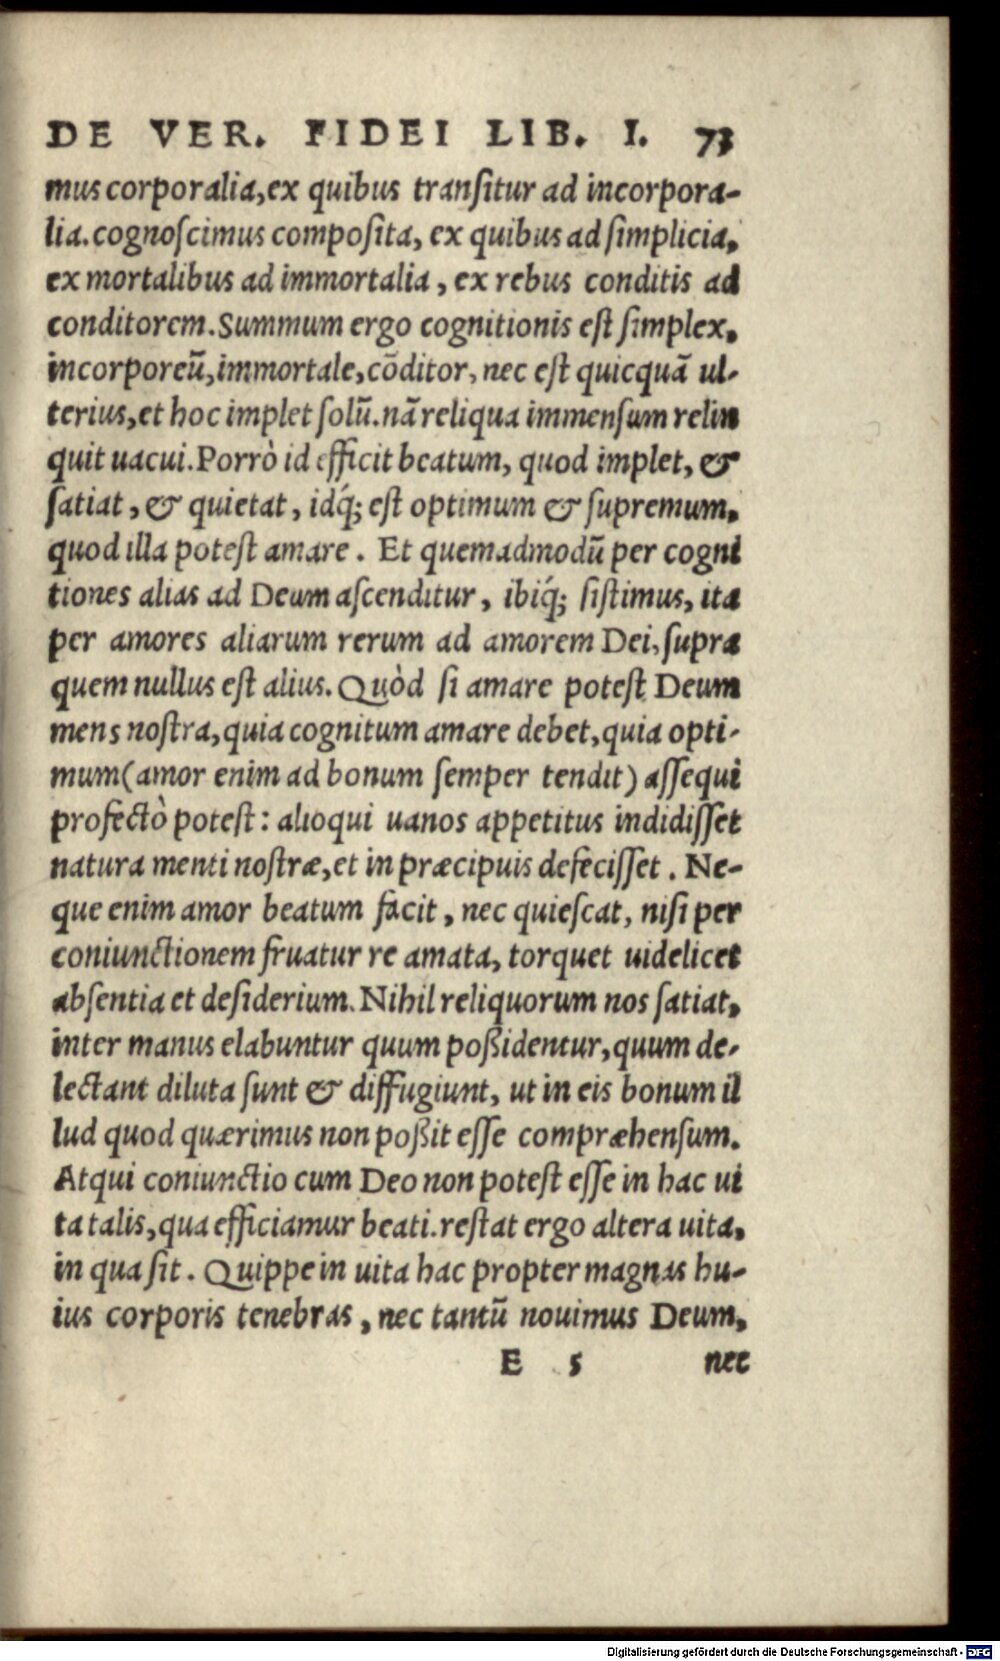 DE VER. FIDEI LIB. I. 73
mus corporalia, ex quibus transitur ad incorpora-
lia. cognoscimus composita, ex quibus ad simplicia,
ex mortalibus ad immortalia, ex rebus conditis ad
conditorem. Summum ergo cognitionis est simplex,
incorporeū, immortale, cōditor, nec est quicquā ul-
terius, et hoc implet solū. nā reliqua immensum relin
quit uacui. Porrò id efficit beatum, quod implet, &
satiat, & quietat, idq́; est optimum & supremum,
quod illa potest amare. Et quemadmodū per cogni
tiones alias ad Deum ascenditur, ibiq́; sistimus, ita
per amores aliarum rerum ad amorem Dei, supra
quem nullus est alius. Quòd si amare potest Deum
mens nostra, quia cognitum amare debet, quia opti-
mum (amor enim ad bonum semper tendit) assequi
profectò potest: alioqui uanos appetitus indidisset
natura menti nostræ, et in præcipuis defecisset. Ne-
que enim amor beatum facit, nec quiescat, nisi per
coniunctionem fruatur re amata, torquet uidelicet
absentia et desiderium. Nihil reliquorum nos satiat,
inter manus elabuntur quum poßidentur, quum de-
lectant diluta sunt & diffugiunt, ut in eis bonum il
lud quod quærimus non poßit esse compræhensum.
Atqui coniunctio cum Deo non potest esse in hac ui
ta talis, qua efficiamur beati. restat ergo altera uita,
in qua sit. Quippe in uita hac propter magnas hu-
ius corporis tenebras, nec tantū nouimus Deum,
E 5 nec
Digitalisierung gefördert durch die Deutsche Forschungsgemeinschaft - DFG